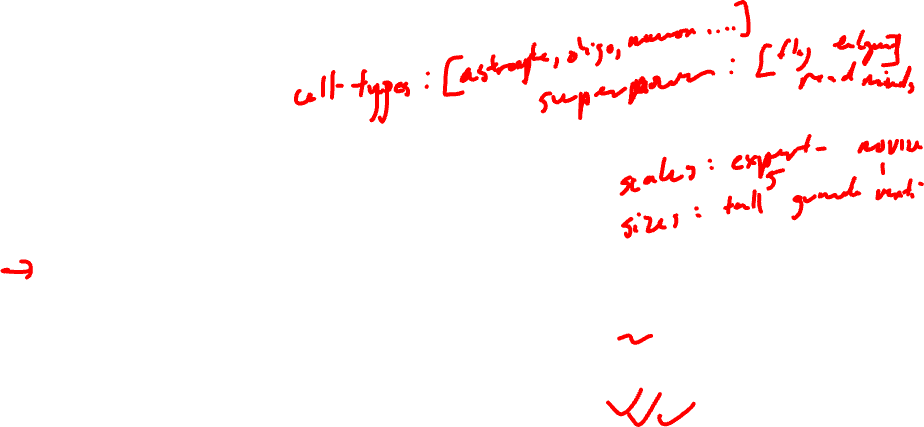 cell-types : [astrocyte, oligo, neuron ....]
superpower : [fly,
read minds
scales : expert - novice
5 1
sizes : tall grande venti